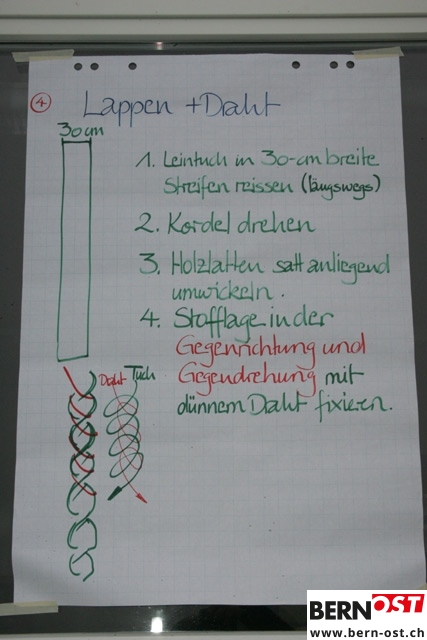 4
Lappen + Draht
30 cm
1. Leintuch in 30-cm breite
Streifen reissen (längswegs)
2. Kordel drehen
3. Holzlatten satt anliegend
umwickeln.
4. Stofflage in der
Gegenrichtung und
Gegendrehung mit
dünnem Draht fixieren.
Draht Tuch
BERN OST
www.bern-ost.ch